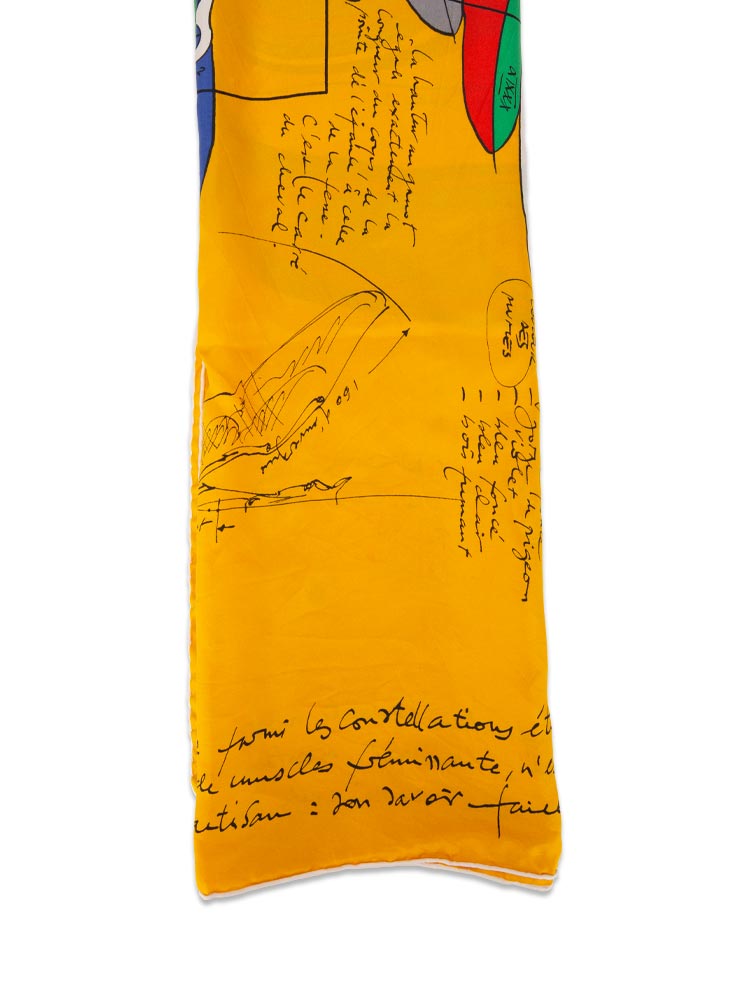 la hauteur au garrot
égale exactement la
longueur du corps, de la
pointe de l'épaule à celle
de la fesse.
C'est le carré
du cheval.
DES
- gorge de pigeon
- violet
- bleu foncé
- bleu clair
- bois fumant
parmi les constellations ét
de muscles frémissante, n'e
artisan : son savoir-faire